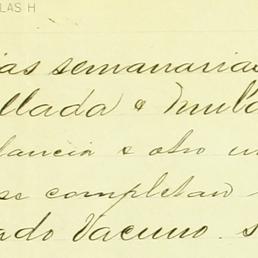 LAS H
ias semanarias
llada o mula
lancia s otro un
se completan
ado Vacuno. s